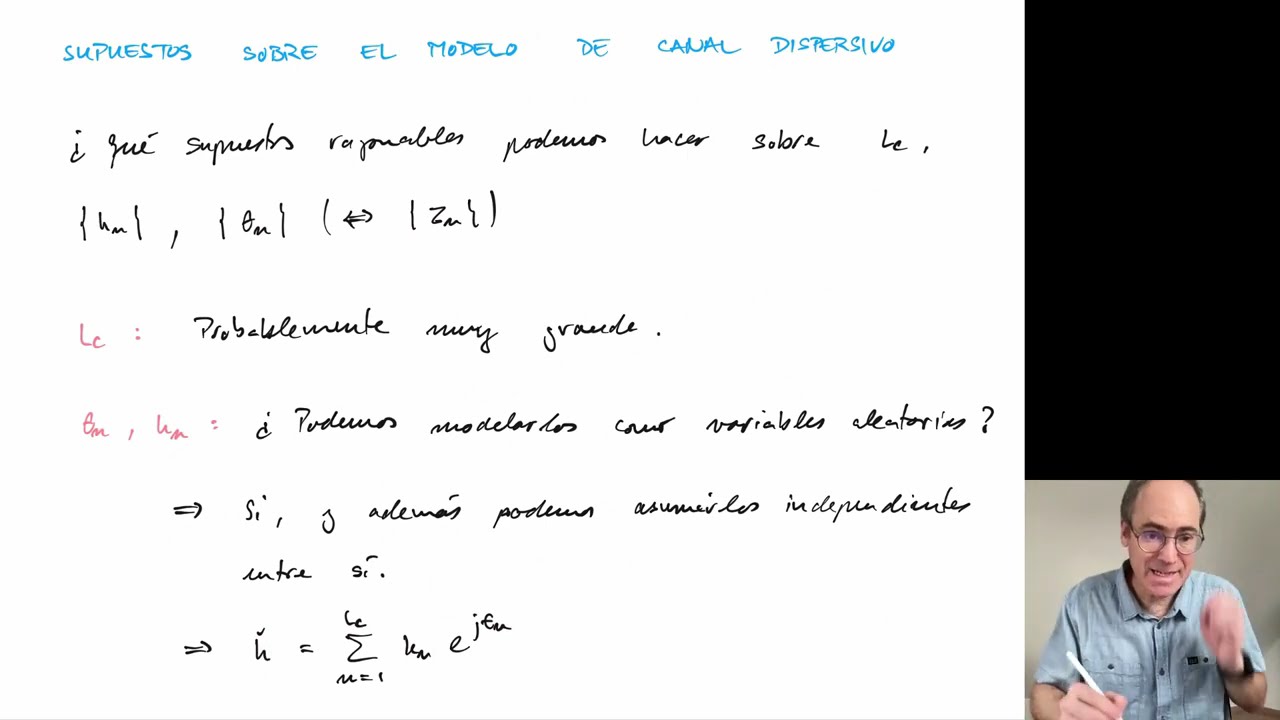 SUPUESTOS SOBRE EL MODELO DE CANAL DISPERSIVO
¿ Qué supuestos razonables podemos hacer sobre Lc,
{hn}, {θn} (⇔ {τn})
Lc : Probablemente muy grande.
θn, hn : ¿ Podemos modelarlos como variables aleatorias ?
⇒ Sí, y además podemos asumirlos independientes
entre sí.
⇒ ȟ = Σ_{n=1}^{Lc} hn e^{jθn}